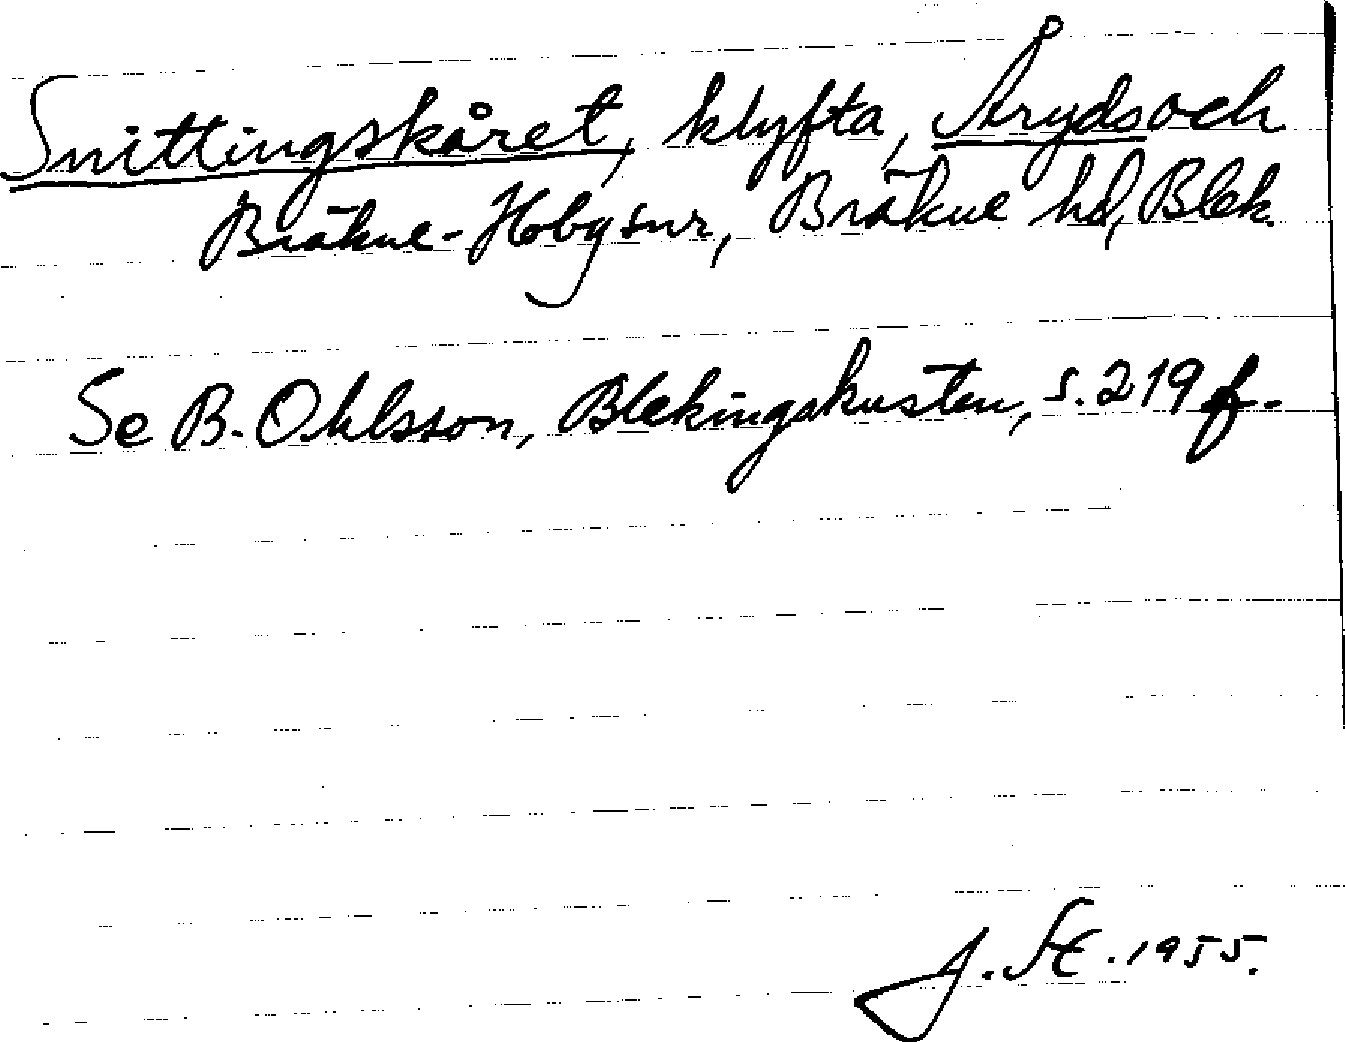 Snittingskåret, klyfta, Åryds och
Bräkne-Hoby snr, Bräkne hd, Blek.
Se B. Ohlsson, Blekingskusten, s. 219 f.
1955.